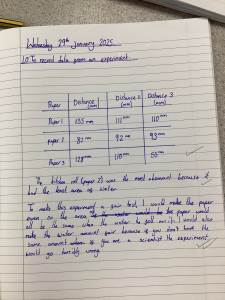 Wednesday 29th January 2025
LO: To record data from an experiment
Paper Distance 1 (mm) Distance 2 (mm) Distance 3 (mm)
Paper 1 135 mm 111 mm 110 mm
paper 2 82 mm 92 mm 93 mm
Paper 3 128 mm 110 mm 55 mm
The kitchen roll (paper 2) was the most absorbent because it
had the least area of water.
To make this experiment a fair test, I would make the paper
even on the area, the paper would
all be the same when the water to
make the water amount fair because if you don't have the
same amount if you are a scientist the experiment
would go horribly wrong